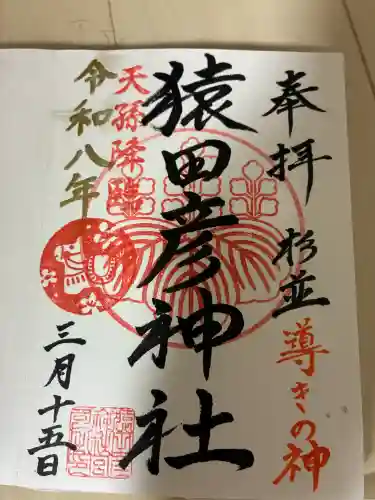 奉拝
杉並
導きの神
猿田彦神社
天孫降臨
令和八年
三月十五日